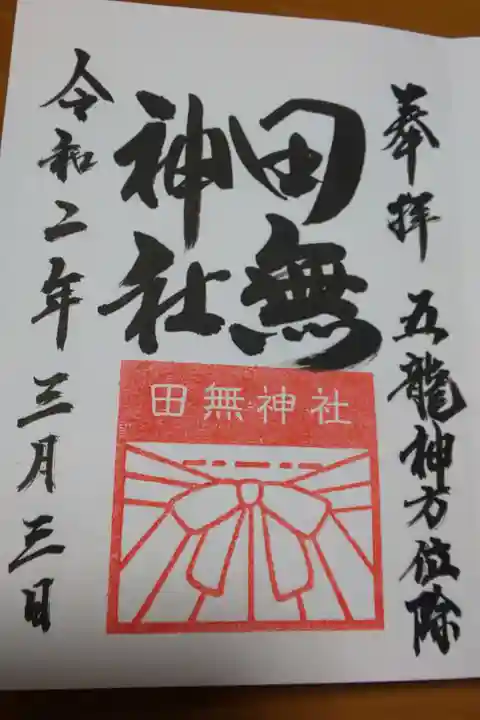 奉拝 五龍神方位除
田無
神社
田無神社
令和二年三月三日